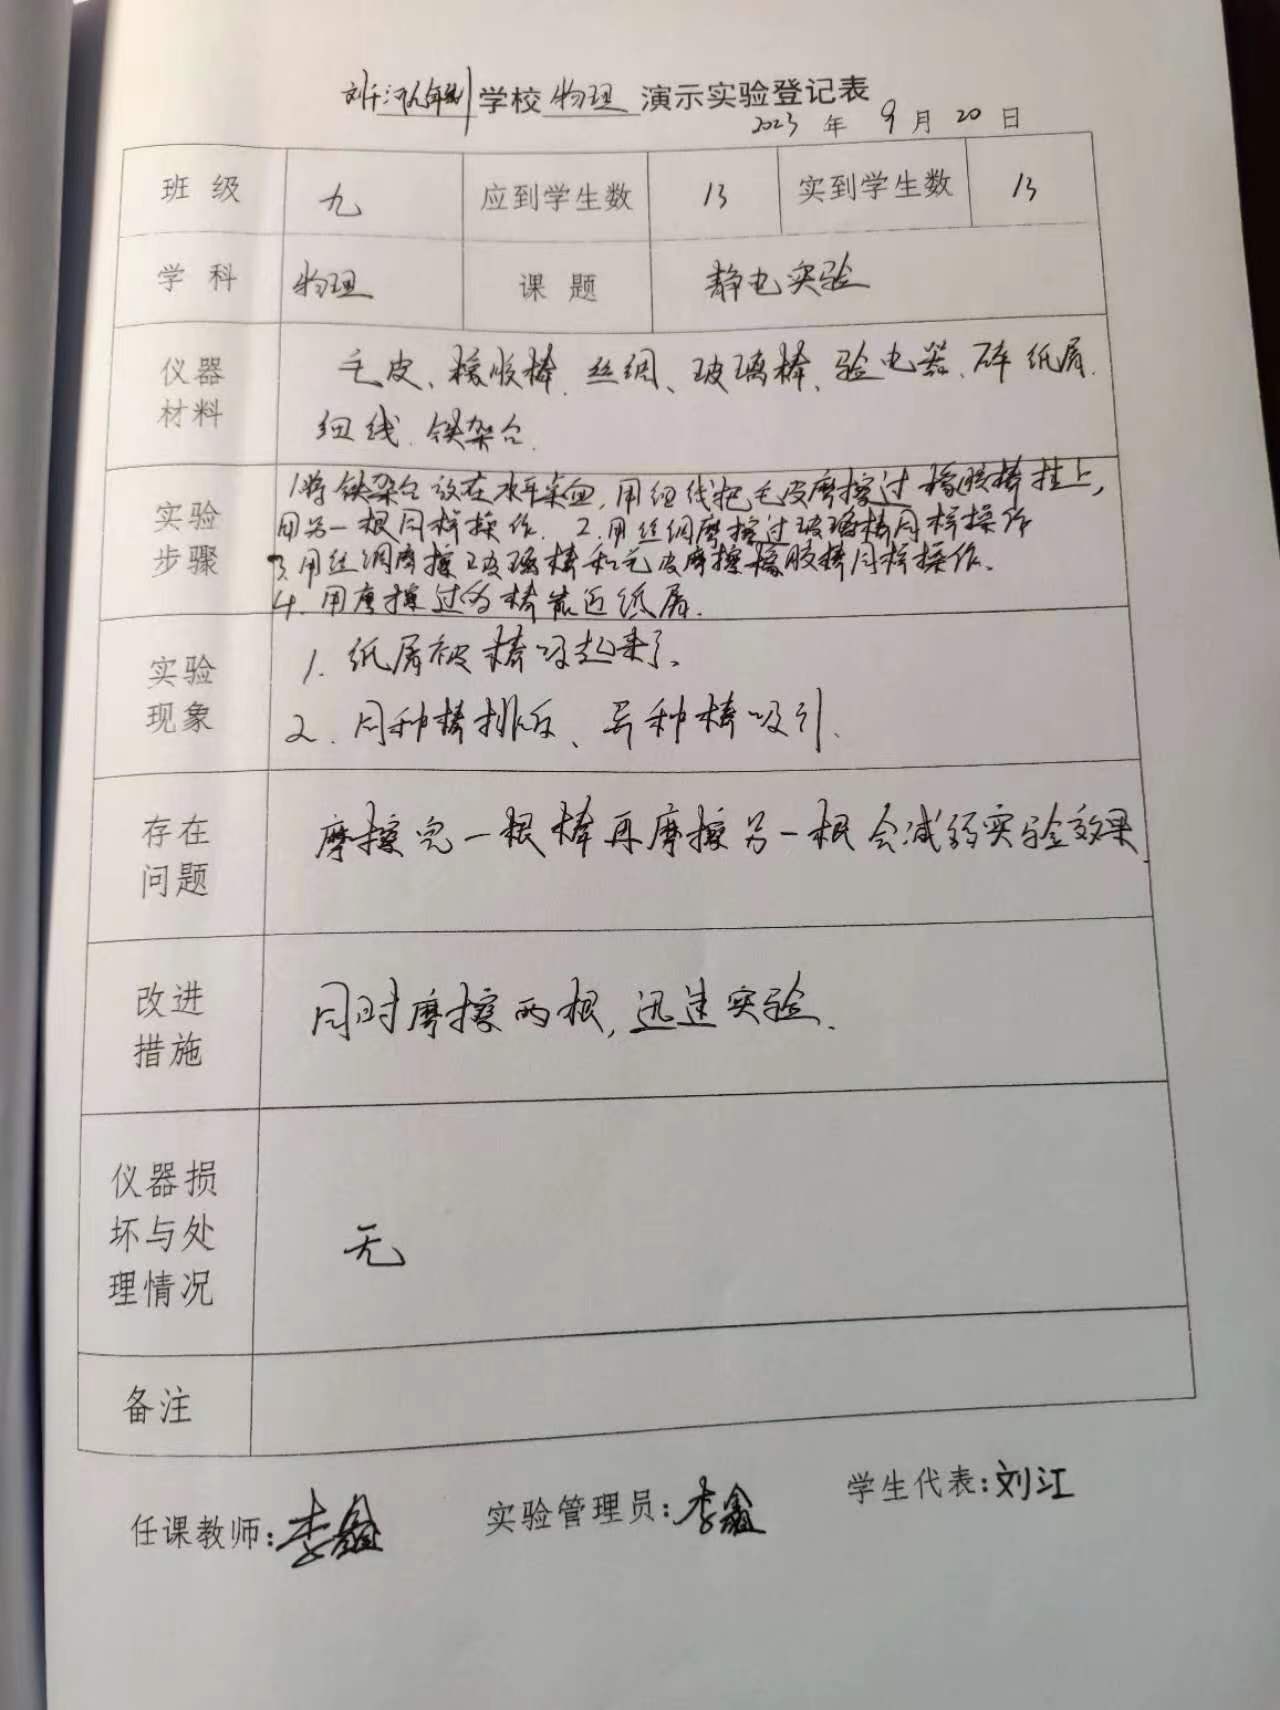 学校 物理 演示实验登记表
2023 年 9 月 20 日
班级 九 应到学生数 13 实到学生数 13
学科 物理 课题 静电实验
仪器材料
毛皮、橡胶棒、丝绸、玻璃棒、验电器、碎纸屑、
细线、铁架台.
实验步骤
1.将铁架台放在水平桌面,用细线把毛皮摩擦过橡胶棒挂上,
用另一根同样操作. 2.用丝绸摩擦过玻璃棒同样操作
3.用丝绸摩擦玻璃棒和毛皮摩擦橡胶棒同样操作.
4.用摩擦过的棒靠近纸屑.
实验现象
1. 纸屑被棒吸起来了.
2. 同种棒排斥、异种棒吸引.
存在问题
摩擦完一根棒再摩擦另一根会减弱实验效果.
改进措施
同时摩擦两根,迅速实验.
仪器损坏与处理情况
无
备注
任课教师:李鑫 实验管理员:李鑫 学生代表:刘江